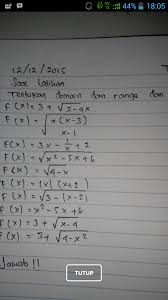 44% 18:05
12/12/2015
Soal latihan
Tentukan domain dan range dari
f(x) = 3 + √2-4x
F(x) = √x(x-3)
x-1
F(x) = 3x - 1/x + x
F(x) = √x²-5x+6
F(x) = √4-x
F(x) = |x| (x+2)
F(x) = √3-(x-2)
F(x) = x²-5x+6
F(x) = 3 + √x-4
F(x) = 3 + √4-x²
Jawab !!
TUTUP